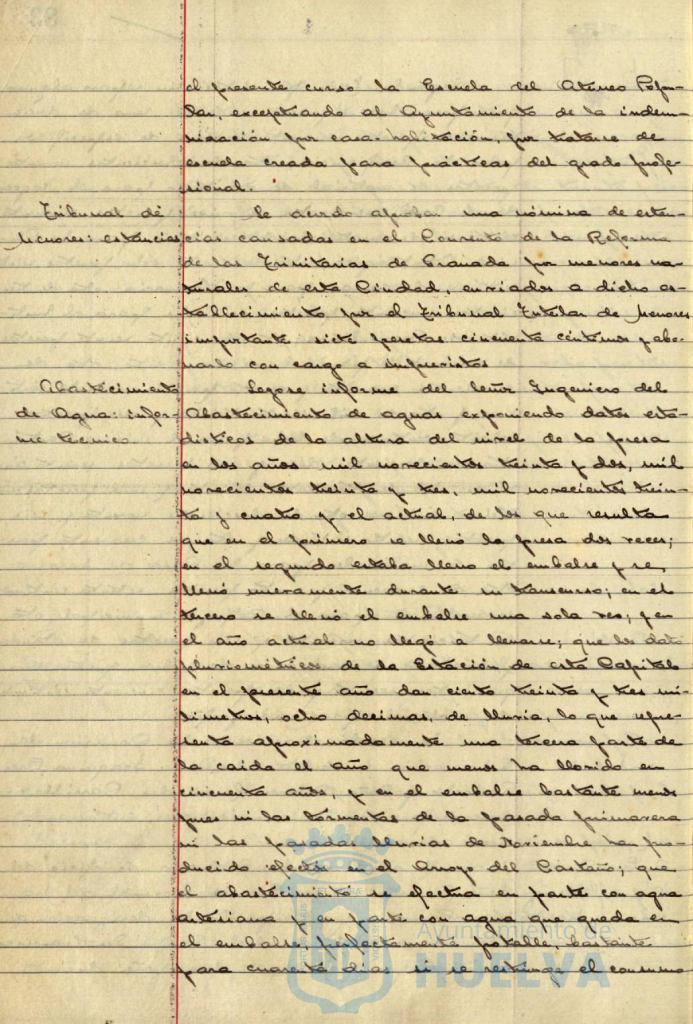 el presente curso la Escuela del Ateneo Popu-
lar, exceptuando al Ayuntamiento de la indem-
nización por casa-habitación, por tratarse de
escuela creada para prácticas del grado profe-
sional.
Tribunal de
Menores: estancias
Se acordó aprobar una nómina de estan-
cias causadas en el Convento de la Reforma
de las Trinitarias de Granada por menores na-
turales de esta Ciudad, enviados a dicho es-
tablecimiento por el Tribunal Tutelar de Menores
importante siete pesetas cincuenta céntimos y abo-
narlo con cargo a imprevistos
Abastecimiento
de Agua: infor-
me técnico
Leyose informe del Señor Ingeniero del
Abastecimiento de aguas exponiendo datos esta-
dísticos de la altura del nivel de la presa
en los años mil novecientos treinta y dos, mil
novecientos treinta y tres, mil novecientos trein-
ta y cuatro y el actual, de los que resulta
que en el primero se llenó la presa dos veces;
en el segundo estaba lleno el embalse y se
llenó nuevamente durante su transcurso; en el
tercero se llenó el embalse una sola vez; y en
el año actual no llegó a llenarse; que los datos
pluviométricos de la Estación de esta Capital
en el presente año dan ciento treinta y tres mi-
límetros, ocho décimas, de lluvia, lo que repre-
senta aproximadamente una tercera parte de
la caída el año que menos ha llovido en
cincuenta años, y en el embalse bastante menos
pues ni las tormentas de la pasada primavera
ni las pasadas lluvias de Noviembre han pro-
ducido efectos en el Arroyo del Castaño; que
el abastecimiento se efectúa en parte con agua
artesiana y en parte con agua que queda en
el embalse, perfectamente potable, bastante
para cuarenta días si se restringe el consumo
Ayuntamiento de
HUELVA